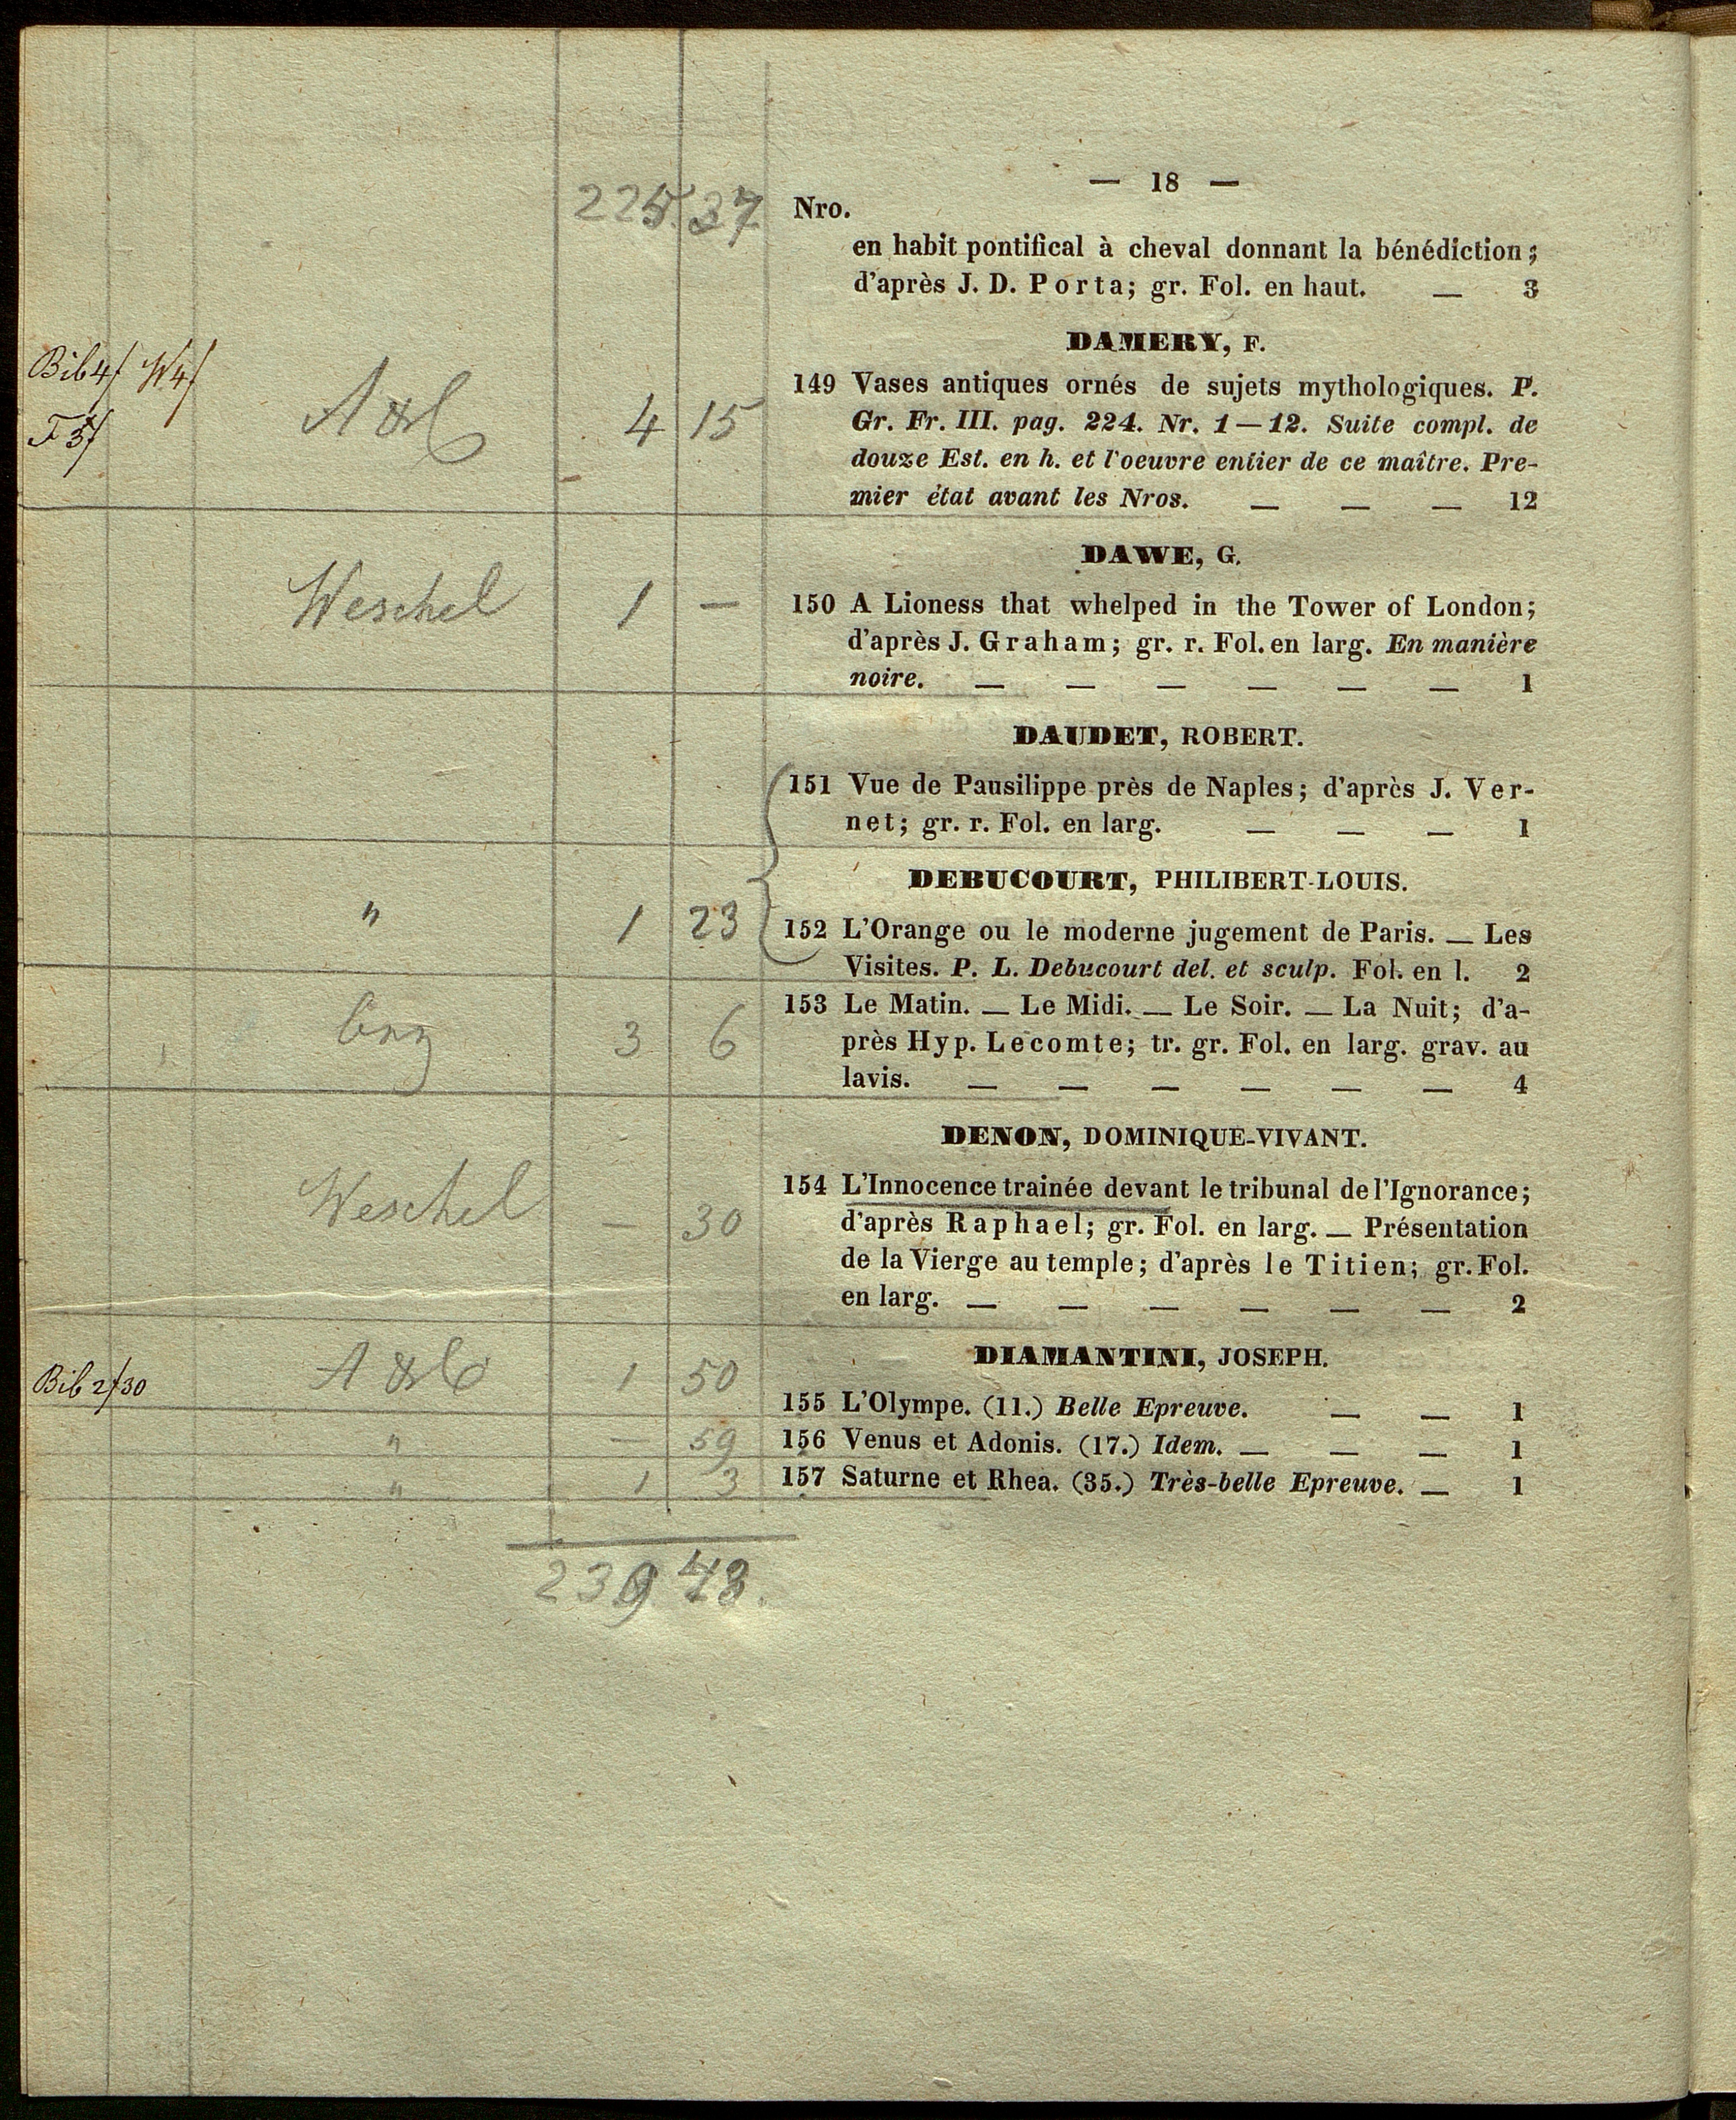 — 18 —
225. 37 Nro.
en habit pontifical à cheval donnant la bénédiction;
d'après J. D. Porta; gr. Fol. en haut. — 3
DAMERY, F.
Bib 4f W4f
F 3f
4 15
149 Vases antiques ornés de sujets mythologiques. P.
Gr. Fr. III. pag. 224. Nr. 1—12. Suite compl. de
douze Est. en h. et l'oeuvre entier de ce maître. Pre-
mier état avant les Nros. — — — 12
DAWE, G.
Weschel 1 —
150 A Lioness that whelped in the Tower of London;
d'après J. Graham; gr. r. Fol. en larg. En manière
noire. — — — — — — 1
DAUDET, ROBERT.
151 Vue de Pausilippe près de Naples; d'après J. Ver-
net; gr. r. Fol. en larg. — — — 1
DEBUCOURT, PHILIBERT-LOUIS.
" 1 23
152 L'Orange ou le moderne jugement de Paris. — Les
Visites. P. L. Debucourt del. et sculp. Fol. en l. 2
3 6
153 Le Matin. — Le Midi. — Le Soir. — La Nuit; d'a-
près Hyp. Lecomte; tr. gr. Fol. en larg. grav. au
lavis. — — — — — — 4
DENON, DOMINIQUE-VIVANT.
Weschel — 30
154 L'Innocence trainée devant le tribunal de l'Ignorance;
d'après Raphael; gr. Fol. en larg. — Présentation
de la Vierge au temple; d'après le Titien; gr. Fol.
en larg. — — — — — — 2
DIAMANTINI, JOSEPH.
Bib 2f30 1 50
155 L'Olympe. (11.) Belle Epreuve. — — 1
" — 59 156 Venus et Adonis. (17.) Idem. — — — 1
" 1 3 157 Saturne et Rhea. (35.) Très-belle Epreuve. — 1
239 43.